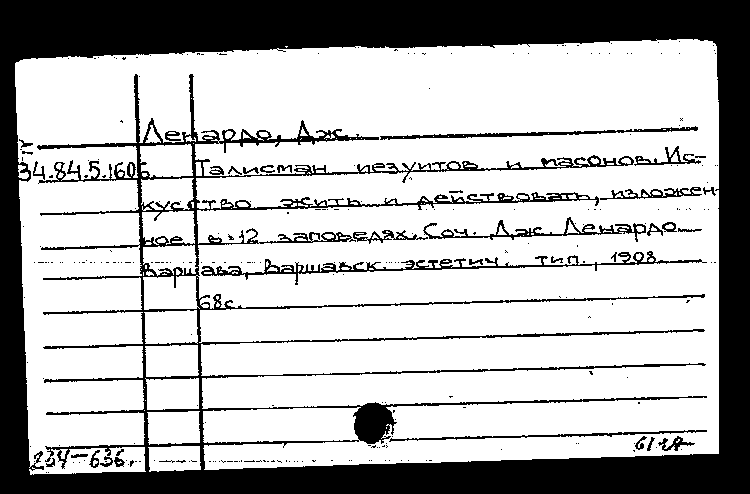 Ленардо, Дж.
34.84.5.1606. Талисман иезуитов и масонов. Ис-
кусство жить и действовать, изложен-
ное в 12 заповедях. Соч. Дж. Ленардо
Варшава, Варшавск. эстетич. тип., 1908.
68с.
234-636.